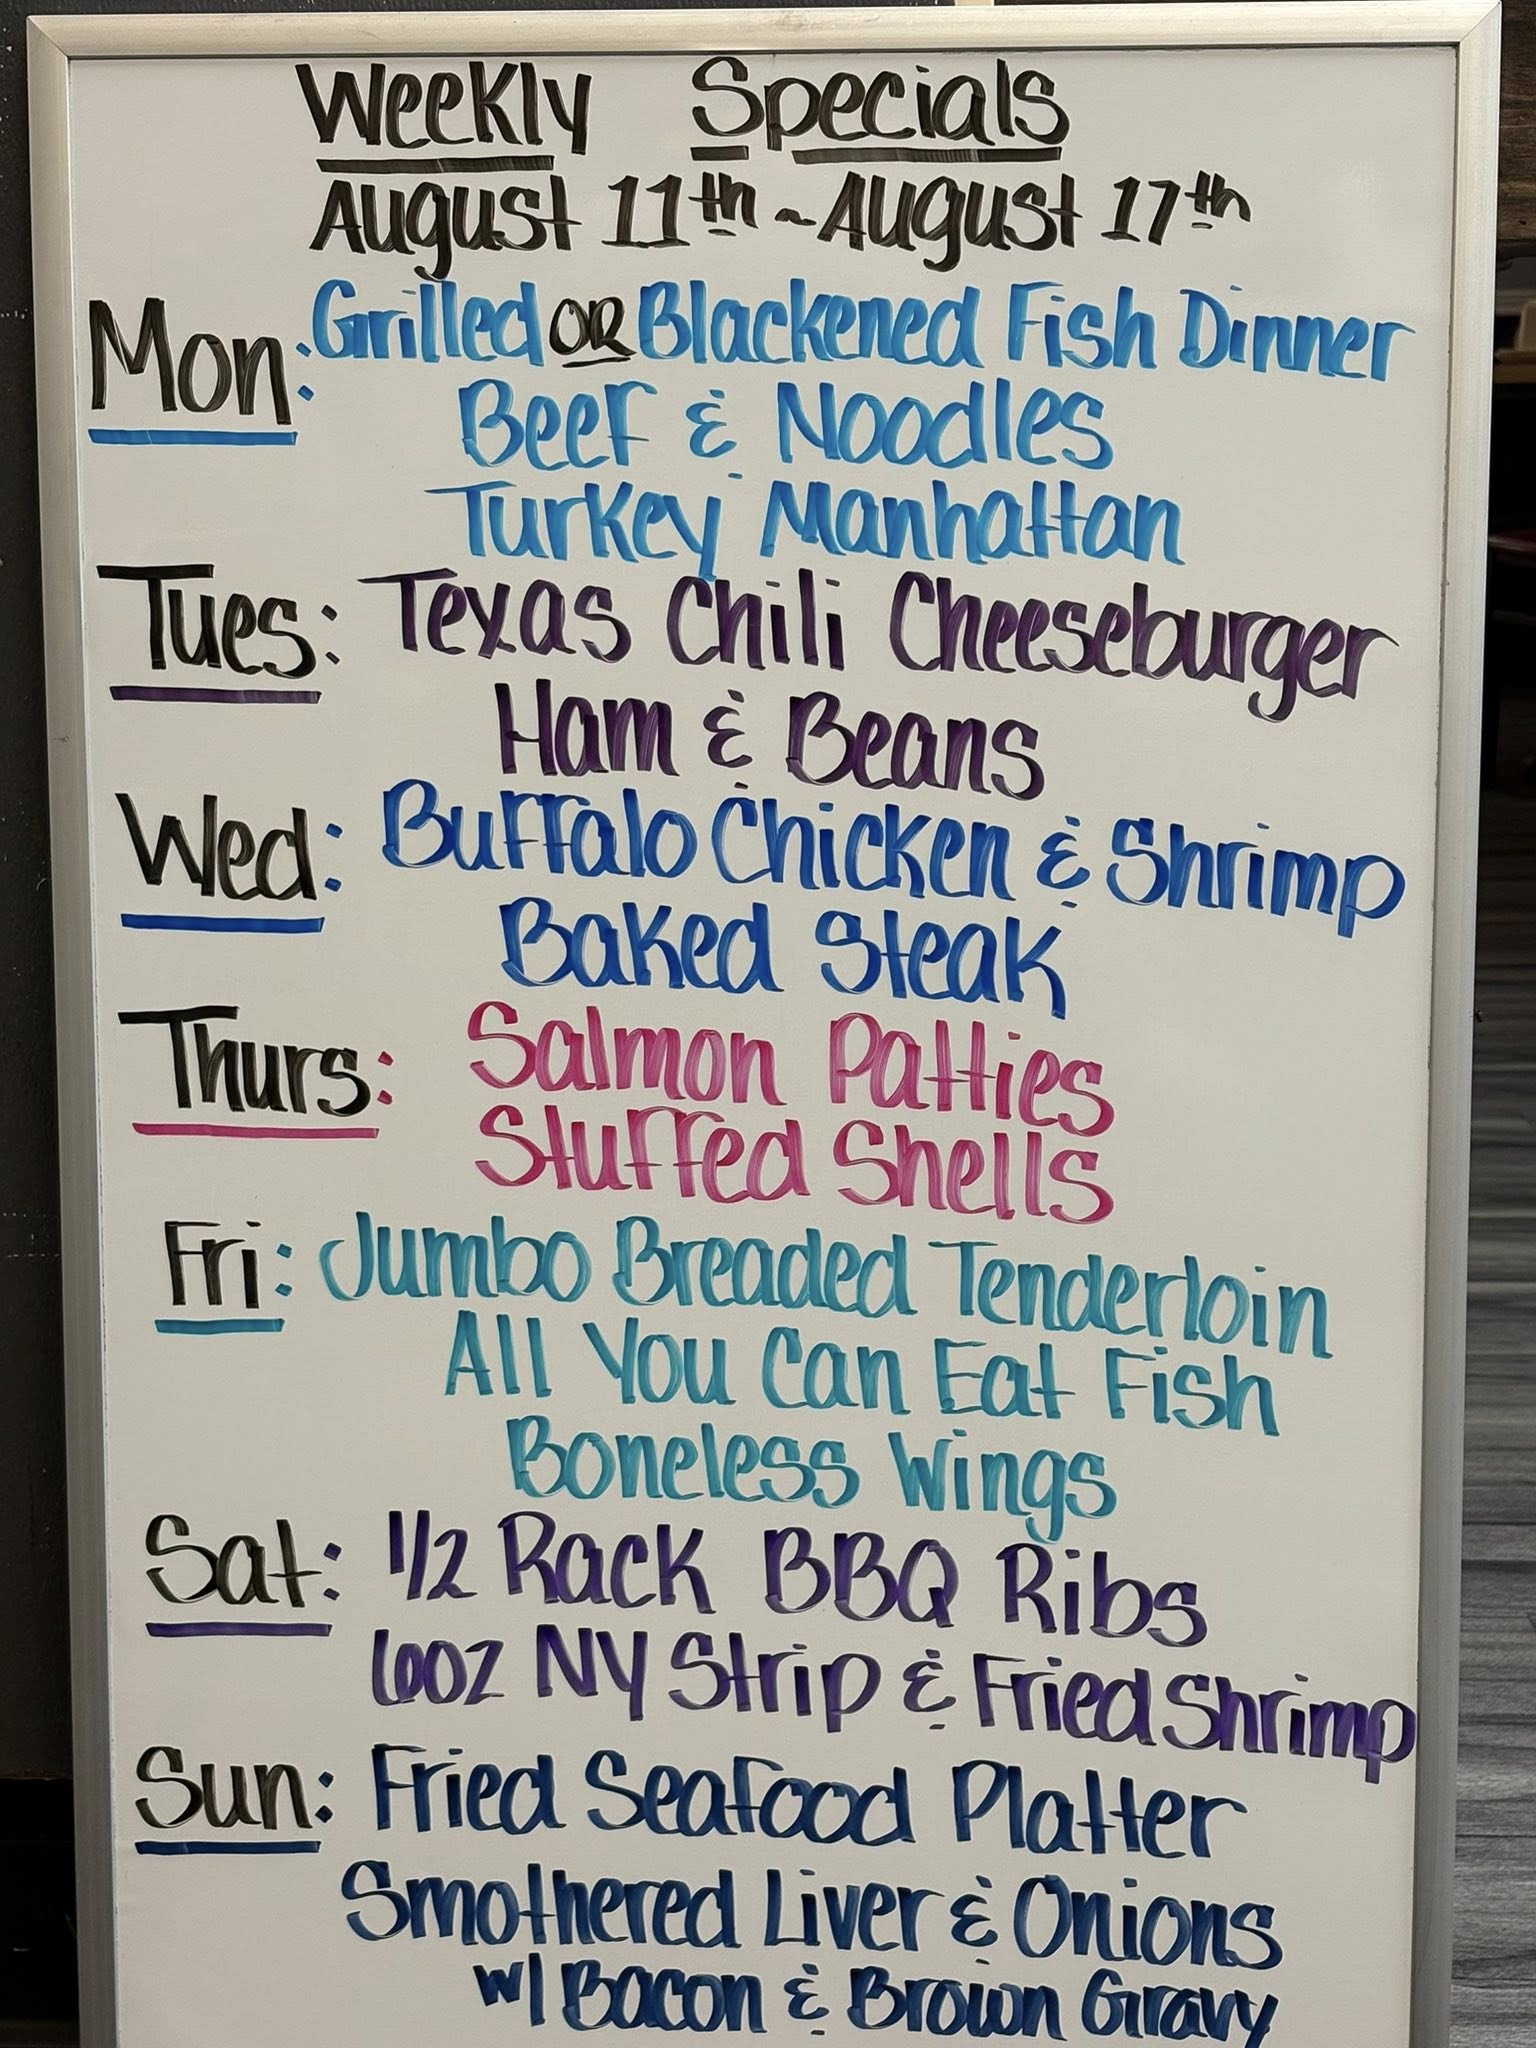 Weekly Specials
August 11th ~ August 17th
Mon: Grilled OR Blackened Fish Dinner
Beef & Noodles
Turkey Manhattan
Tues: Texas Chili Cheeseburger
Ham & Beans
Wed: Buffalo Chicken & Shrimp
Baked Steak
Thurs: Salmon Patties
Stuffed Shells
Fri: Jumbo Breaded Tenderloin
All You Can Eat Fish
Boneless Wings
Sat: 1/2 Rack BBQ Ribs
6oz NY Strip & Fried Shrimp
Sun: Fried Seafood Platter
Smothered Liver & Onions
w/ Bacon & Brown Gravy